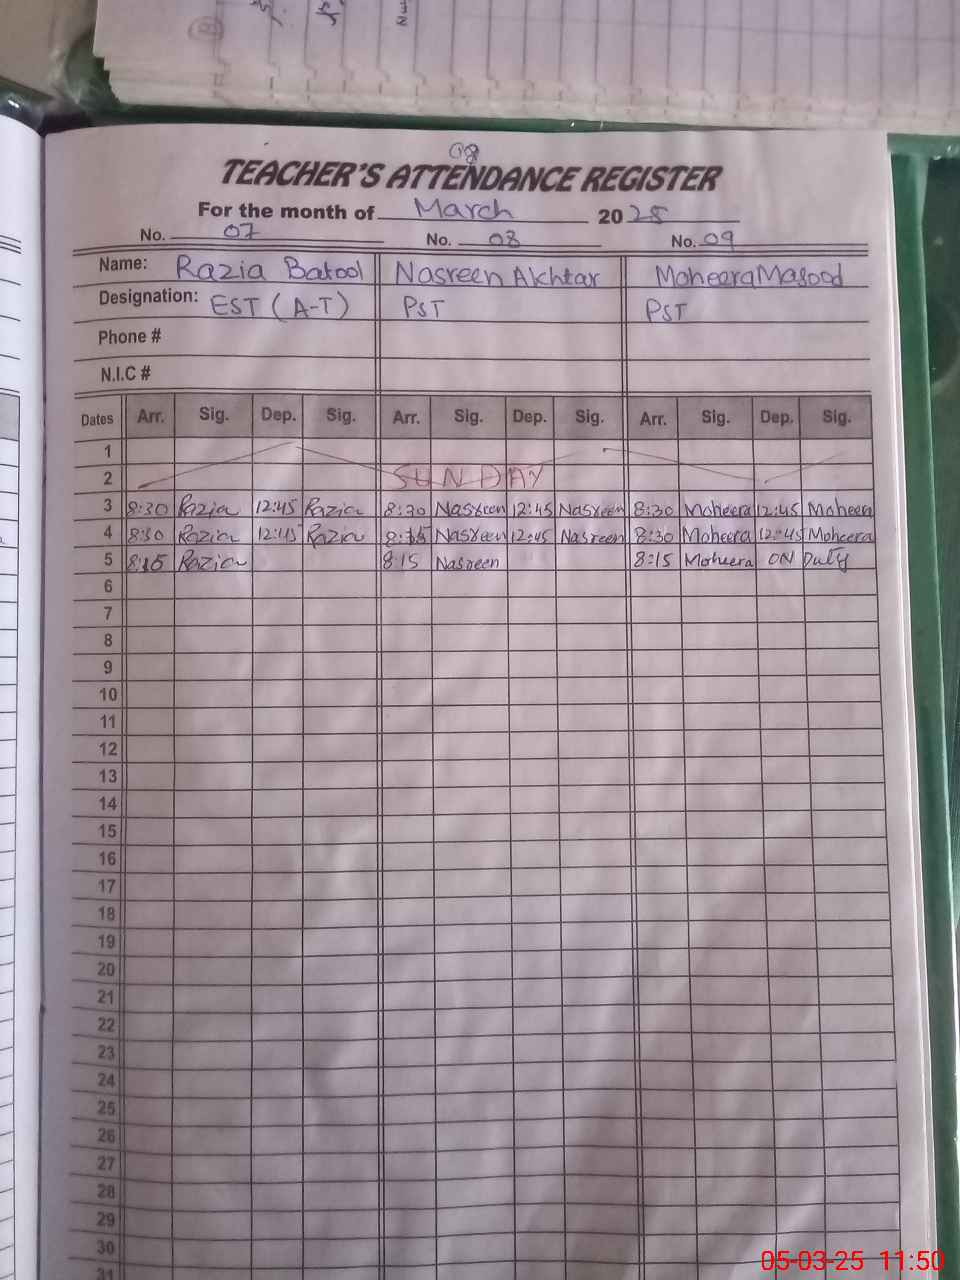 08
TEACHER'S ATTENDANCE REGISTER
For the month of March 2025
No. 07 No. 08 No. 09
Name: Razia Batool Nasreen Akhtar Moheera Masood
Designation: EST (A-T) PST PST
Phone #
N.I.C #
Dates Arr. Sig. Dep. Sig. Arr. Sig. Dep. Sig. Arr. Sig. Dep. Sig.
1
2 SUNDAY
3 8:30 Razia 12:45 Razia 8:30 Nasreen 12:45 Nasreen 8:30 Moheera 12:45 Moheera
4 8:30 Razia 12:45 Razia 8:15 Nasreen 12:45 Nasreen 8:30 Moheera 12:45 Moheera
5 8:15 Razia 8:15 Nasreen 8:15 Moheera ON Duty
6
7
8
9
10
11
12
13
14
15
16
17
18
19
20
21
22
23
24
25
26
27
28
29
30
31
05-03-25 11:50